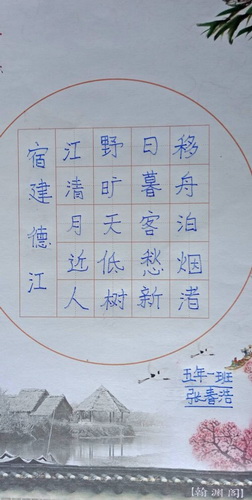 移舟泊烟渚
日暮客愁新
野旷天低树
江清月近人
宿建德江
五年一班
张春浩
[翰渊阁]